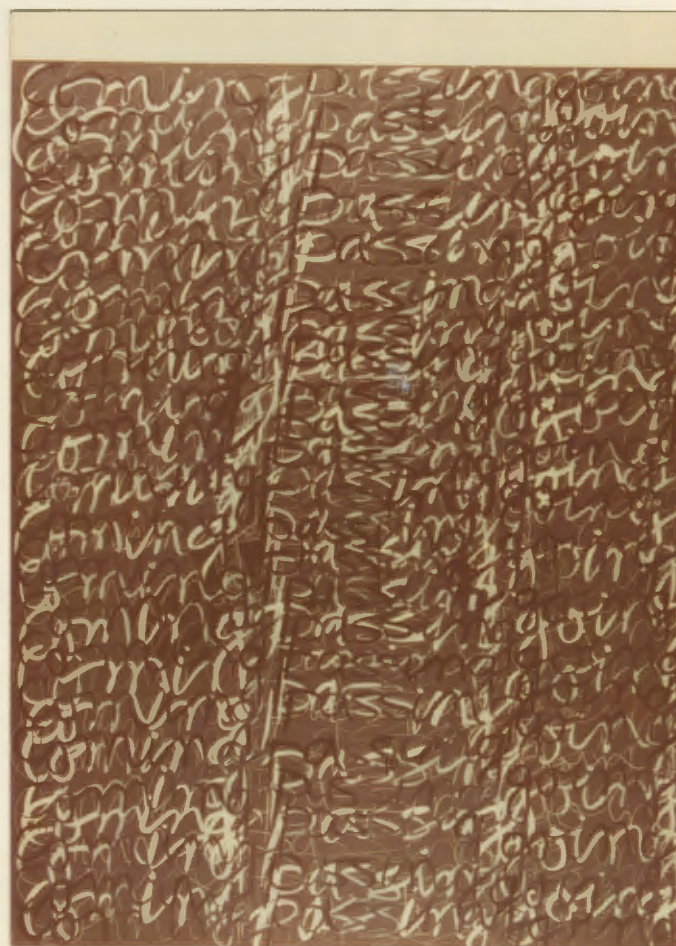 Coming passing going
Coming passing going
Coming passing going
Coming passing going
Coming passing going
Coming passing going
Coming passing going
Coming passing going
Coming passing going
Coming passing going
Coming passing going
Coming passing going
Coming passing going
Coming passing going
Coming passing going
Coming passing going
Coming passing going
Coming passing going
Coming passing going
Coming passing going